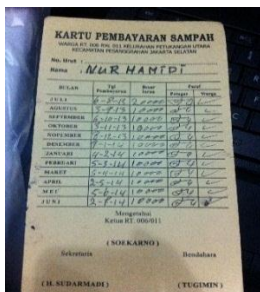 KARTU PEMBAYARAN SAMPAH
WARGA RT. 006 RW. 011 KELURAHAN PETUKANGAN UTARA
KECAMATAN PESANGGRAHAN JAKARTA SELATAN
No. Urut :
Nama : NUR HAMIDI
BULAN Tgl Pembayaran Besar Iuran Paraf
Petugas Warga
JULI 20000
AGUSTUS 10000
SEPTEMBER 10000
OKTOBER 10000
NOVEMBER 10000
DESEMBER 10000
JANUARI 10000
FEBRUARI 10000
MARET 10000
APRIL 10000
MEI 10000
JUNI 10000
Mengetahui
Ketua RT. 006/011
( SOEKARNO )
Sekretaris Bendahara
( H. SUDARMADI ) ( TUGIMIN )